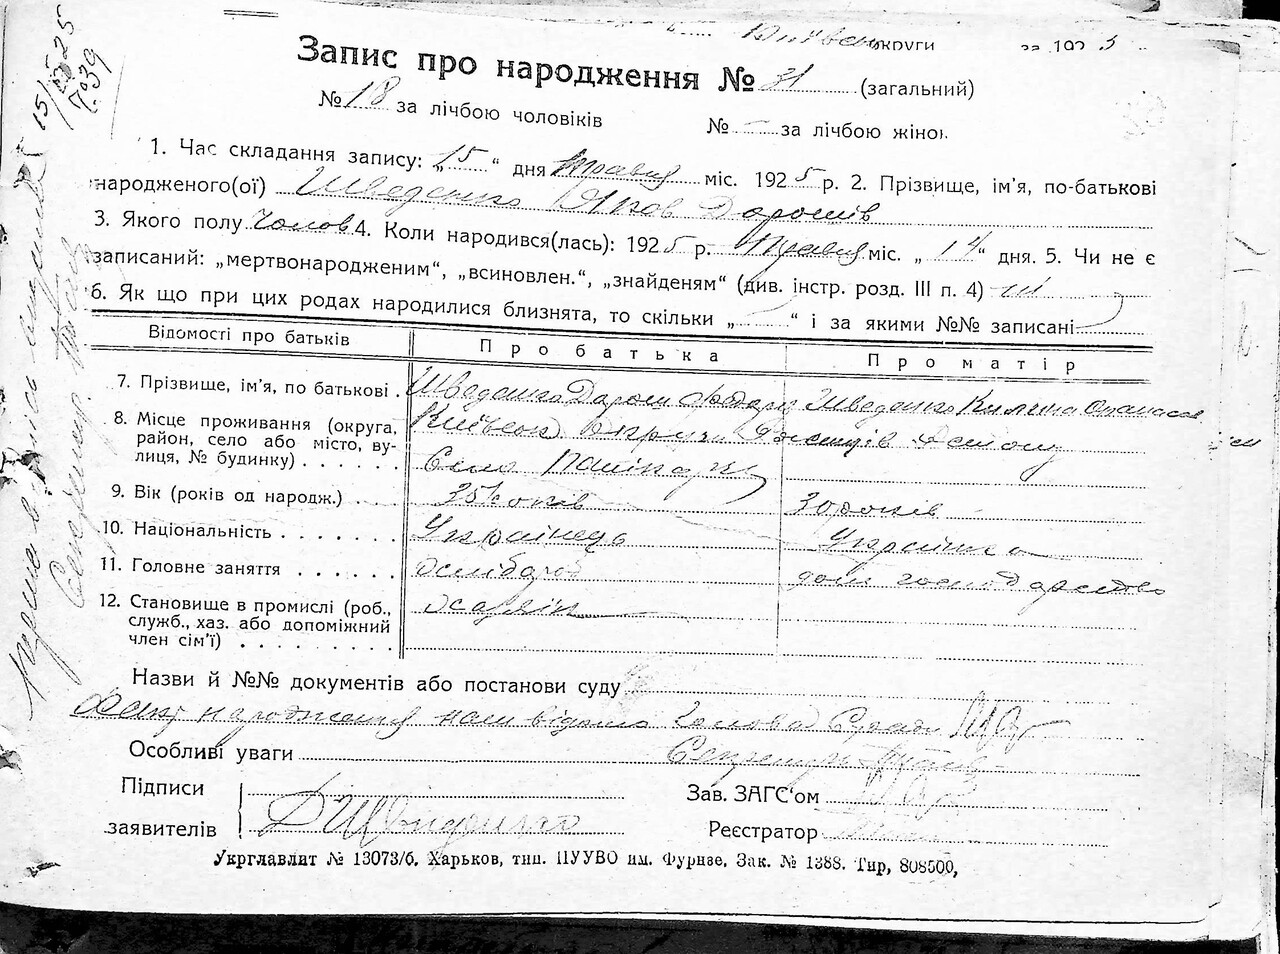 округи за 1925
Запис про народження № 31 (загальний)
№ 18 за лічбою чоловіків № — за лічбою жінок
1. Час складання запису: „15“ дня травня міс. 1925 р. 2. Прізвище, ім'я, по-батькові
народженого(ої) Шведенко Яков Дорошів
3. Якого полу чолов 4. Коли народився(лась): 1925 р. травня міс. „14“ дня. 5. Чи не є
записаний: „мертвонародженим“, „всиновлен.“, „знайденям“ (див. інстр. розд. III п. 4) ні
6. Як що при цих родах народилися близнята, то скільки „—“ і за якими №№ записані
Відомості про батьків Про батька Про матір
7. Прізвище, ім'я, по батькові . Шведенко Дорош Шведенко
8. Місце проживання (округа, район, село або місто, вулиця, № будинку) . . . . . . Київськ округи району
Село
9. Вік (років од народж.) . . 35 років 30 років
10. Національність . . . . . . . Українець Українка
11. Головне заняття . . . . . . хлібороб дом господарство
12. Становище в промислі (роб., служб., хаз. або допоміжний член сім'ї) . . . . . . . . . хазяїн
Назви й №№ документів або постанови суду
Факт народження нам відомо Голова С/ради
Особливі уваги Секретар
Підписи
заявителів Д Шведенко
Зав. ЗАГС'ом
Реєстратор
Укрглавлит № 13073/б. Харьков, тип. ПУУВО им. Фрунзе. Зак. № 1388. Тир, 808500,
15/V 25
№ 39
Секретар